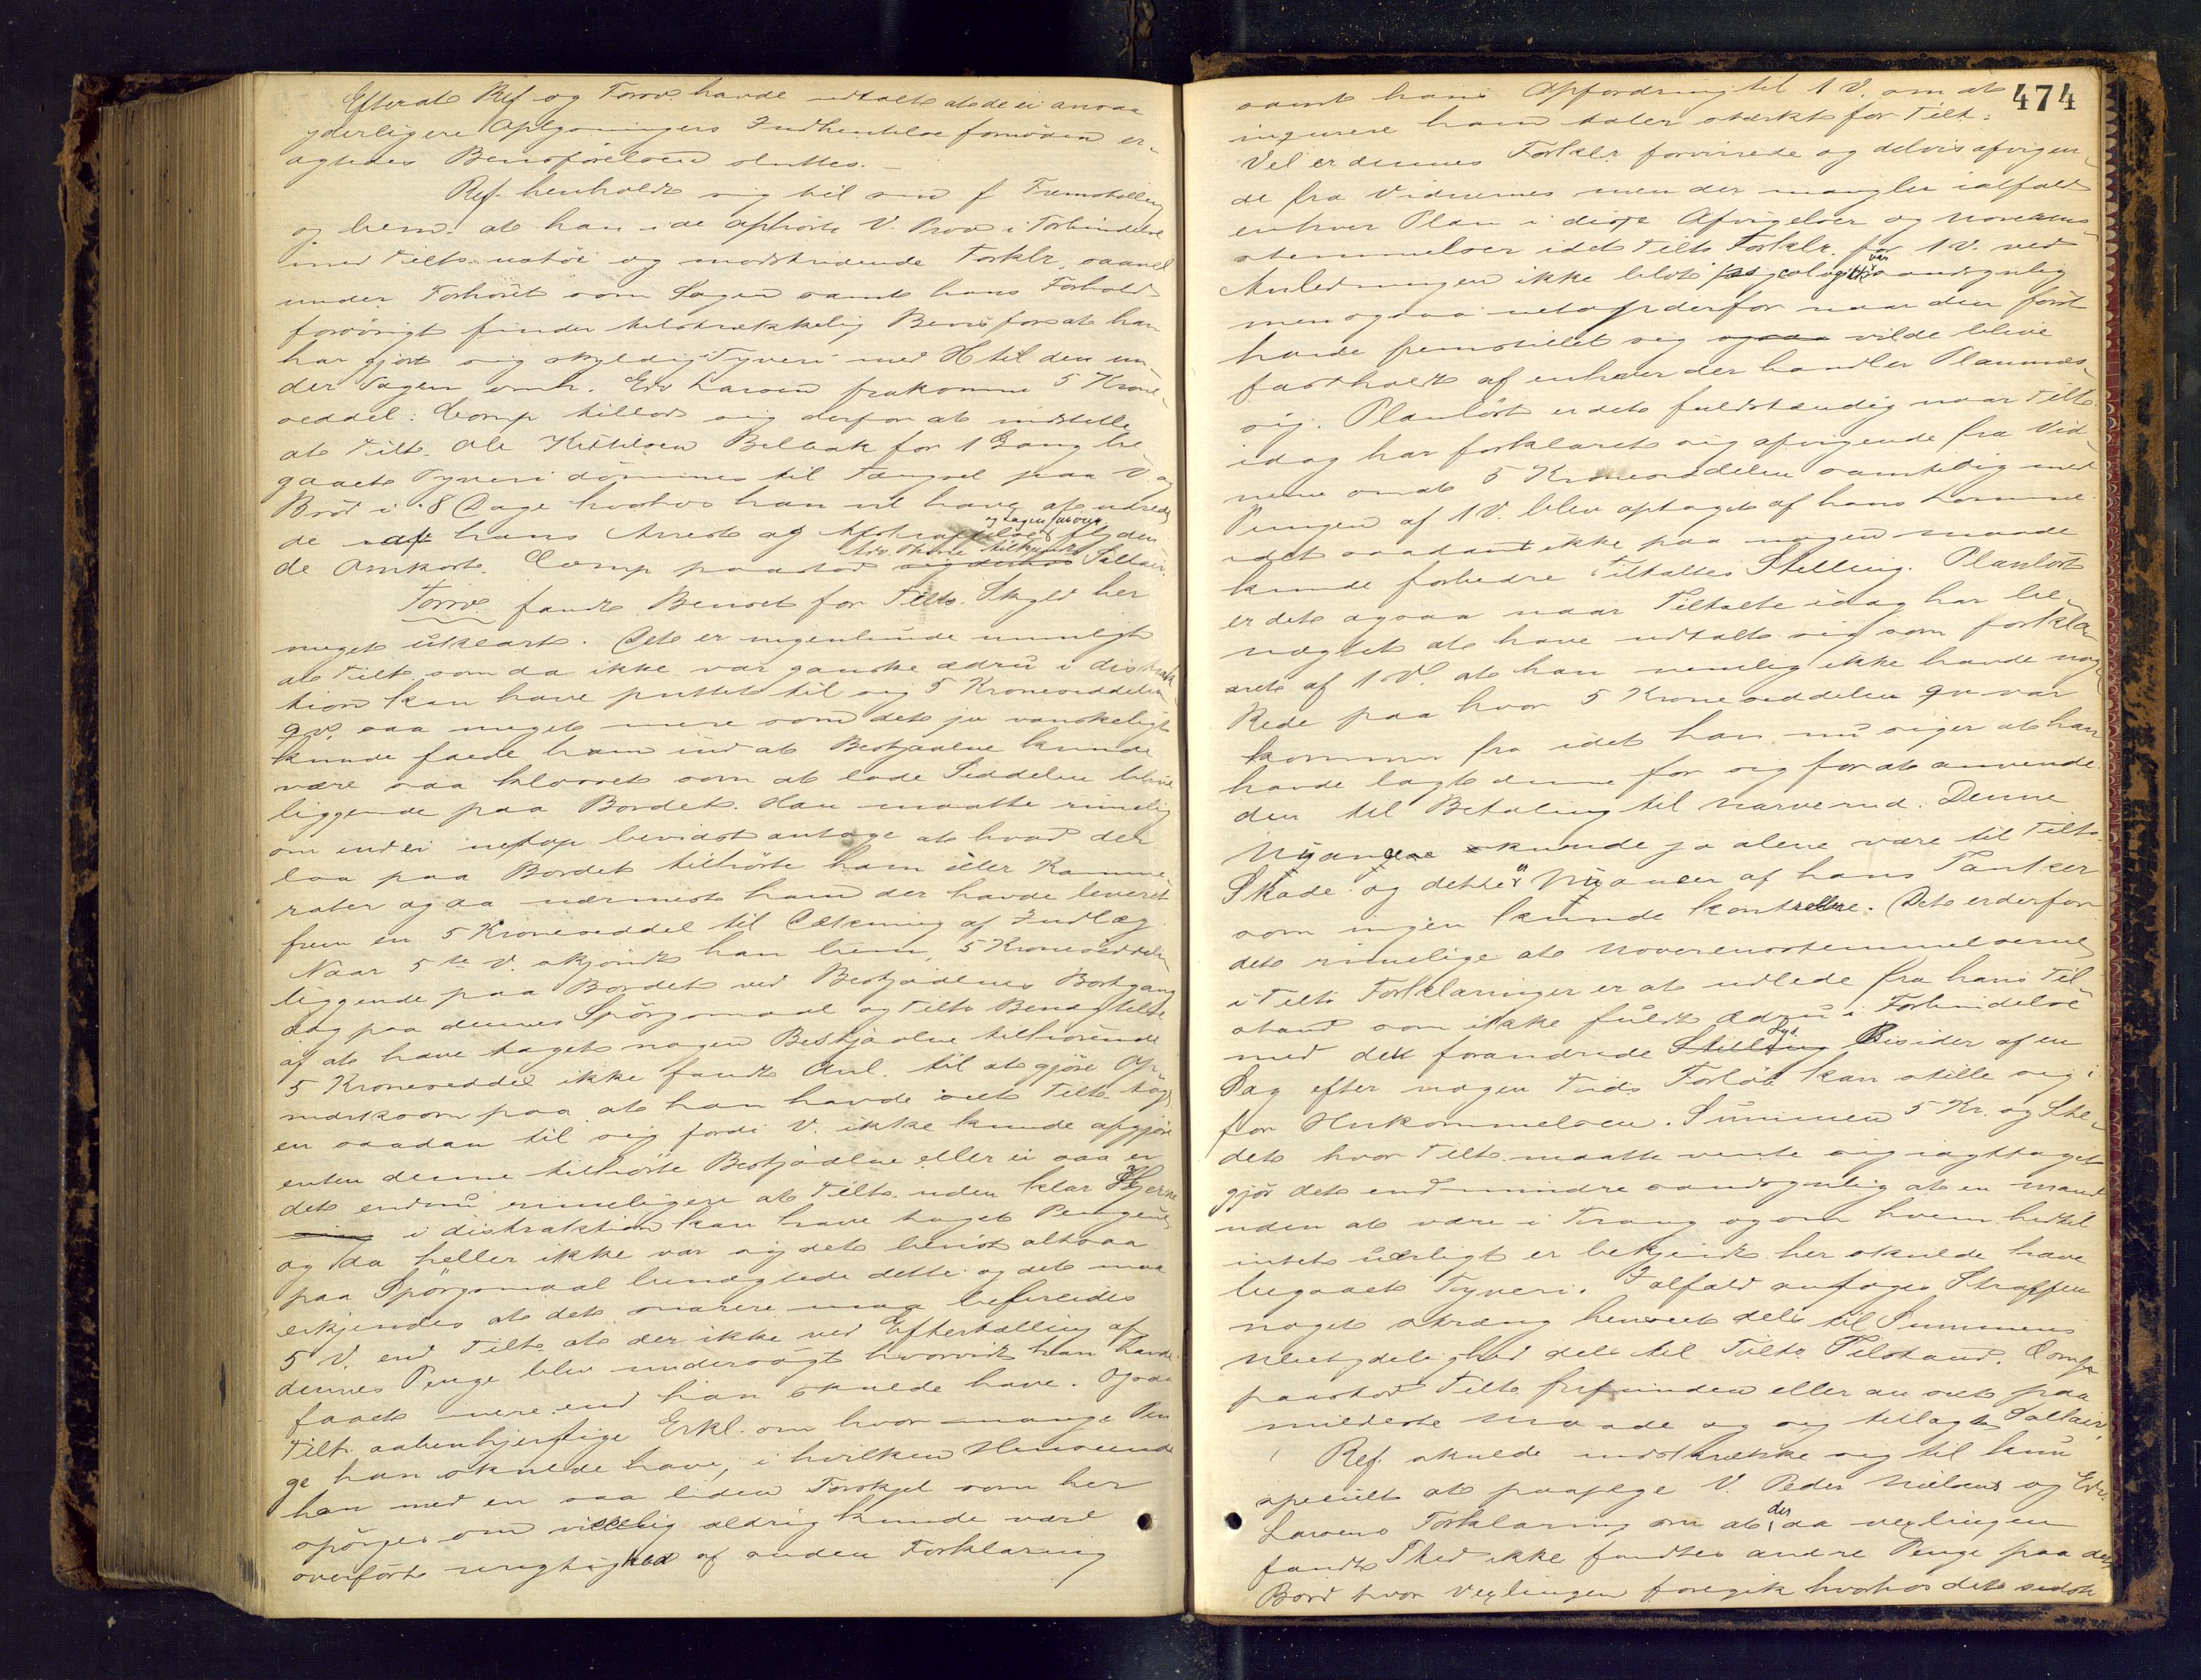 Efterat Ref og Forsv. havde udtalt at de ei ansaa
yderligere Oplysningers Indhentelse fornöden er-
agtedes Bevisförelsen sluttet.
Ref. henholdt sig til sin f Fremstilling
og bem. at han i de afhörte V. Prov i Forbindelse
med Tilts. ustöe og modstridende Forklr. saavel
under Forhöret som Sagen samt hans Forhold
forövrigt finder tilstrækkelig Bevis for at han
har gjort sig skyldig i Tyveri med H til den un-
der Sagen omh. Edv Larsen frakomne 5 Krone-
seddel: Comp tillod sig derfor at indstille
at Tilt. Ole Kittilsen Belbak for 1 Gang be-
gaaet Tyveri dömmes til Fængsel paa V. og
Bröd i 8 Dage hvorhos han vil have at udrede
de af hans Arrest og Afstraffelse og Sagen flyden
de Omkost. Comp paastod Sallair.
Forsv. fandt Beviset for Tilts. Skyld her
meget uklart. Det er ingenlunde umuligt
at Tilt. som da ikke var ganske ædru i distrak
tion kan have puttet til sig 5 Kroneseddelen
qv. saa meget mere som det jo vanskeligt
kunde falde ham ind at Bestjaalne kunde
være saa klosset som at lade Seddelen blive
liggende paa Bordet. Han maatte rimelig
om end ei netop bevidst antage at hvad der
laa paa Bordet tilhörte ham eller Kamme-
rater ogsaa nærmest ham der havde leveret
frem en 5 Kroneseddel til Dækning af Indlæg
Naar 5te V. skjöndt han bem. 5 Kroneseddelen
liggende paa Bordet ved Bestjaalnes Bortgang
dog paa dennes Spörgsmaal og Tilts Benægtelse
af at have taget nogen Bestjaalne tilhörende
5 Kroneseddel ikke fandt Anl. til at gjöre Op
mærksom paa at han havde seet Tilt. tage
en saadan til sig fordi V. ikke kunde afgjöre
enten denne tilhörte Bestjaalne eller ei saa er
det endnu rimeligere at Tilt. uden klar Hjerne
i distraktion kan have taget Pengene
og da heller ikke var sig det bevist altsaa
paa Spörgsmaal benægtede dette og det maa
erkjendes at det snarere maa bebreides
5 V. end Tilt. at der ikke ved Eftertælling af
dennes Penge blev undersögt hvorvidt han havde
faaet mere end han skulde have. Ogsaa
Tilt. aabenhjertige Erkl. om hvor mange Pen
ge han skulde have, i hvilken Henseende
han med en saa liden Forskjel som her
spörges om vistnok aldrig kunde være
overfört urigtighed af anden Forklaring
474
samt hans Opfordring til 1 V. om at
inqurere ham taler stærkt for Tilt:
Vel er dennes Forklr forvirrede og delvis afvigen-
de fra Vidnernes men der mangler ialfald
enhver Plan i disse Afvigelser og Uoverens-
stemmelser idet Tilts Forklr. for 1 V. ved
Anledningen ikke blot psycologisk var sandsynlig
men ogsaa netop derfor naar den först
havde fremstillet sig vilde blive
fastholdt af enhver der handler Planmæs-
sig. Planlöst er det fuldstændig naar Tilt.
idag har forklaret sig afvigende fra Vid-
nerne om at 5 Kroneseddelen samtidig med
Pungen af 1 V. blev optaget af hans Lomme
idet saadant ikke paa nogen maade
kunde forbedre Tiltaltes Stilling. Planlöst
er det ogsaa naar Tiltalte idag har be-
nægtet at have udtalt sig som forkla-
ret af 1 V. at han nemlig ikke havde nogen
Rede paa hvor 5 Kroneseddelen qv. var
kommen fra idet han nu siger at han
havde lagt denne for sig for at anvende
den til Betaling til Narverud. Denne
kunde jo alene være til Tilts
Skade og dette er Nyancer af hans Tanker
som ingen kunde kontrollere. Det er derfor
det rimelige at Uoverensstemmelserne
i Tilts Forklaringer er at udlede fra hans Til-
stand som ikke fuldt ædru i Forbindelse
med det forandrede Lys Besider af en
Sag efter nogen Tids Forlöb kan stille sig i
for Hukommelsen. Summen 5 Kr. og Ste-
det hvor Tilt. maatte vente sig iagttaget
gjör det end mindre sandsynlig at en mand
uden at være i Trang og om hvem hidtil
intet uærligt er bekjendt her skulde have
begaaet Tyveri. Ialfald ansages Straffen
noget streng henseet dels til Summens
Ubetydelighed dels til Tilts. Tilstand. Comp
paastod Tilt. frifunden eller anseet paa
mildeste Maade og sig tillagt Sallair.
Ref. skulde indskrænke sig til kun
specielt at paapege V. Peder Nielsens og Edv.
Larsens Forklaring om at der da vexlingen
fandt Sted ikke fandtes andre Penge paa det
Bord hvor Vexlingen foregik hvorhos det sidste